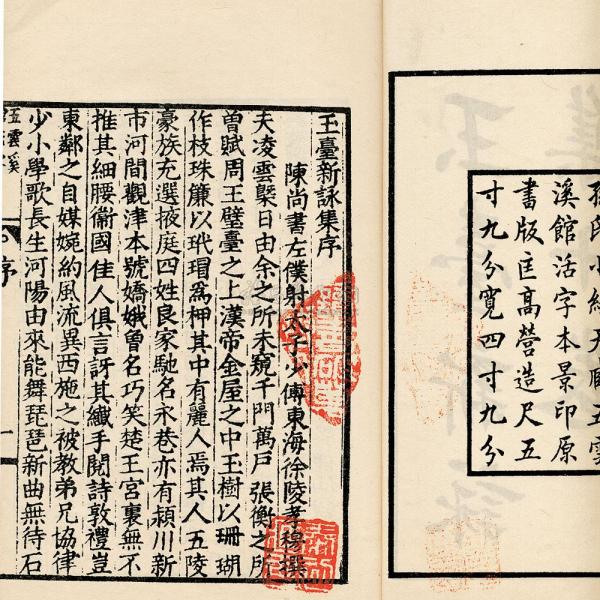 孫氏小綠天藏五雲
溪館活字本景印原
書版匡高營造尺五
寸九分寬四寸九分
玉臺新詠集序
陳尚書左僕射太子少傅東海徐陵孝穆撰
夫凌雲槩日由余之所未窺千門萬戶張衡之所
曾賦周王璧臺之上漢帝金屋之中玉樹以珊瑚
作枝珠簾以玳瑁爲柙其中有麗人焉其人五陵
豪族充選掖庭四姓良家馳名永巷亦有潁川新
市河間觀津本號嬌娥曾名巧笑楚王宮裏無不
推其細腰衞國佳人俱言訝其纖手閱詩敦禮豈
東鄰之自媒婉約風流異西施之被教弟兄協律
少小學歌長生河陽由來能舞琵琶新曲無待石
五雲溪
序
一